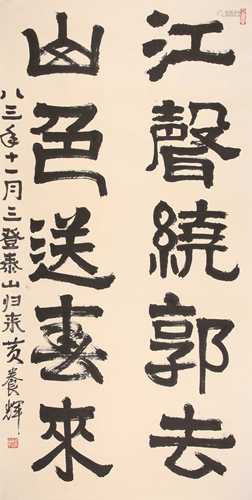 江聲繞郭去
山色送春來
八三年十一月三登泰山归来黄養輝